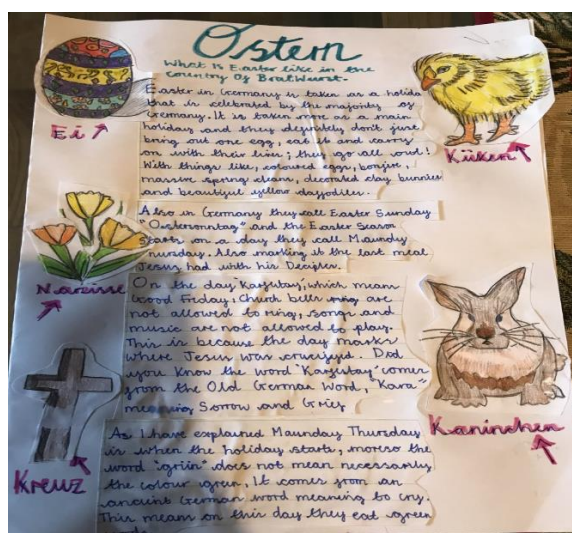 Ostern
What Is Easter like in the
country Of BratWurst-
Easter in Germany is taken as a holida
that is celebrated by the majority of
Germany. It is taken more as a main
holiday and they definitely don't just
bring out one egg, eat it and carry
on with their lives; they go all out!
With things like, coloured eggs, bonfire,
massive spring clean, decorated clay bunnies
and beautiful yellow daffodiles.
Ei
Küken
Also in Germany they call Easter Sunday
"Ostersonntag" and the Easter Season
starts on a day they call Maundy
Thursday. Also marking it the last meal
Jesus had with his Deciples.
Narzisse
On the day Karfritag, which means
Good Friday, Church bells ring are
not allowed to ring, songs and
music are not allowed to play.
This is because the day marks
where Jesus was crucifyd. Did
you Know the word "Karfritag" comes
from the Old German Word, "Kara"
meaning Sorrow and Grief
Kaninchen
Kreuz
As I have explained Maunday Thursday
is when the holiday starts, moreso the
word "grün" does not mean necessarily
the colour green, It comes from an
ancient German word meaning to cry.
This means on this day they eat green